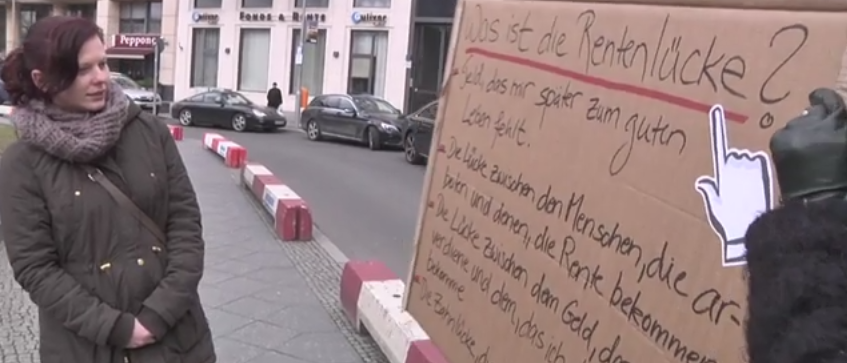 Peppone
FONDS & RENTE
Was ist die Rentenlücke?
- Geld, das mir später zum guten
Leben fehlt.
- Die Lücke zwischen den Menschen, die ar-
beiten und denen, die Rente bekommen
- Die Lücke zwischen dem Geld, das
verdiene und dem, das ich
bekomme
- Die Zahnlücke, d